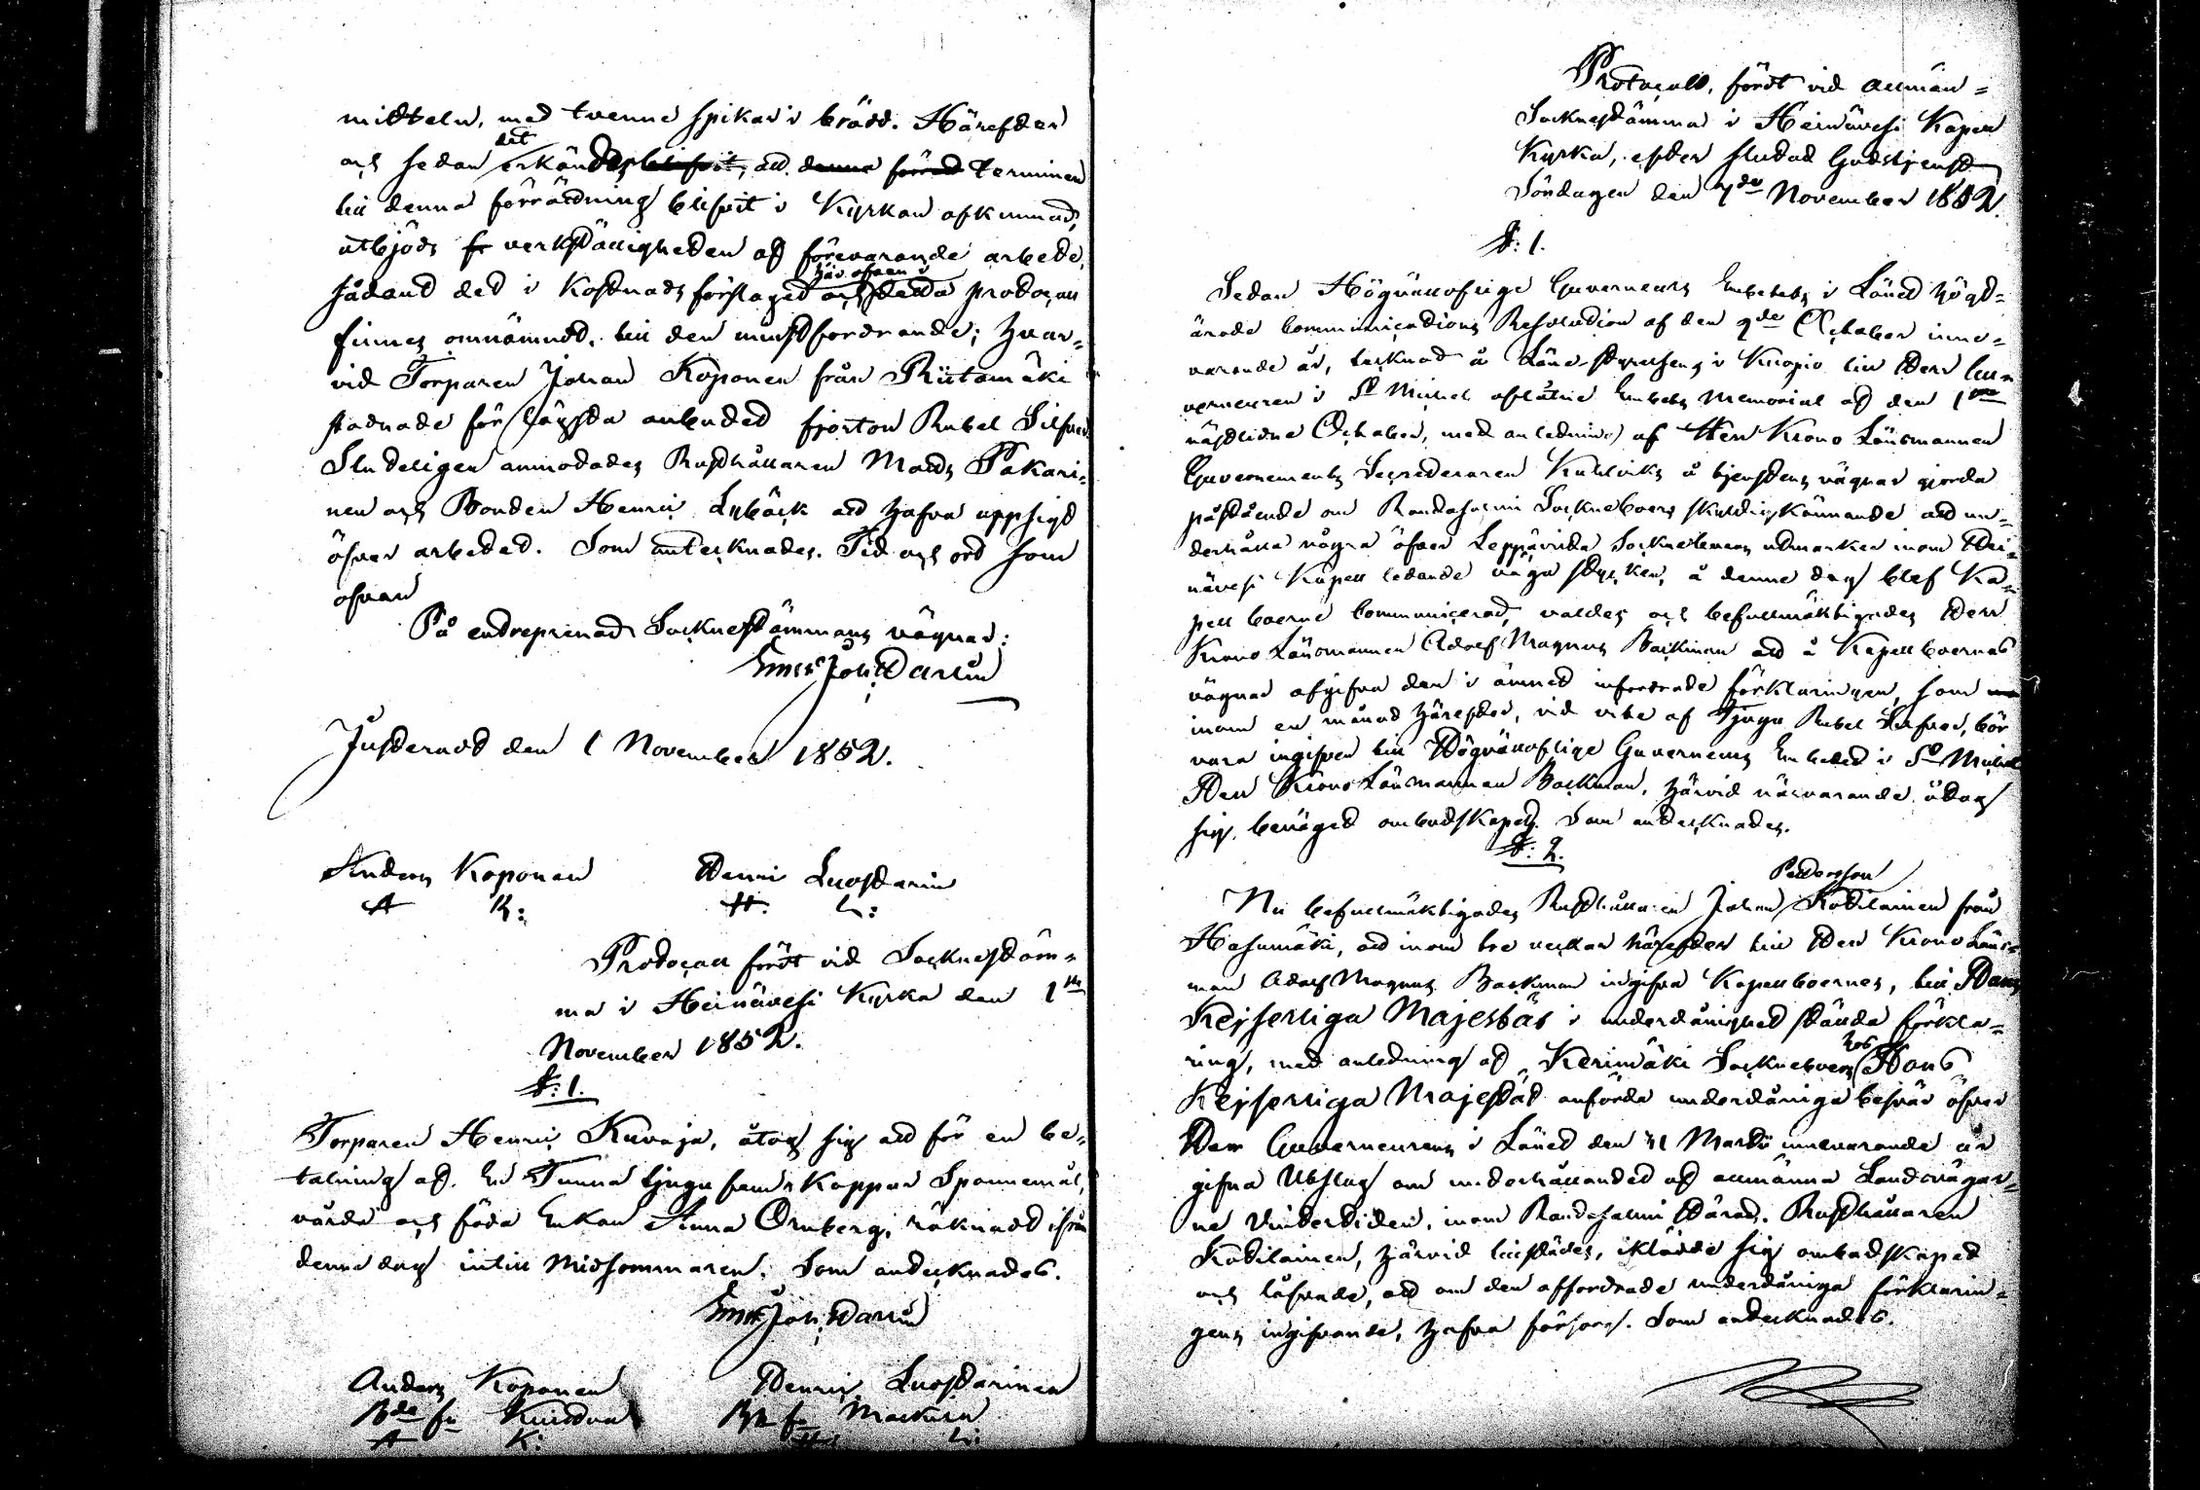 mitteln, med tvenne spikar i brädd. Härefter
det
och sedan erkändes blifvit, att denna förrä terminen
till denna förrättning blifvit i Kyrkan afkunnad,
utbjöds fr verkställigheten af förevarande arbete,
här ofvan i
sådant det i Kostnads förslaget och detta protocoll
finnes omnämndt, till den minstfordrande; hvar-
vid Torparen Johan Koponen från Riitamäki
stadnade för lägsta anbudet fjorton Rubel Silfver
Slutligen anmodades Rusthållaren Mats Pakari-
nen och Bonden Henric Lybäck att hafva uppsigt
öfver arbetet. Som antecknades. Tid och ort som
ofvan
På entreprenad Socknestämmans vägnar:
Joh: Warlin
Justeradt den 1 November 1852.
Anders Koponen Henric Luostarin
A K: H. L:
Protocoll fördt vid Sockne stäm-
ma i Heinävesi Kyrka den 1ste
November 1852.
§: 1.
Torparen Henric Kuvaja, åtog sig att för en be-
talning af En Tunna tjugu fem Kappar Spannemål,
vårda och föda Enkan Anna Ornberg, räknadt ifrån
denna dag intill Midsommaren. Som antecknades.
Joh: Warlin
Anders Koponen Henric Luostarinen
Bde fr Bde fr
A K: H: L:
Protocoll, fördt vid allmän-
Socknestämma i Heinävesi Kapell
Kyrka, efter slutad Gudstjenst
Söndagen den 7de November 1852.
§: 1.
Sedan Högvälloflige Guverneurs Embetets i Länet högt-
ärade Communications Resolution af den 9de October inne-
varande år, tecknad å Läne Styrelsens i Kuopio till Herr Gu-
verneuren i St Michel aflåtne Embets Memorial af den 1ste
nästlidne October, med anledning af Herr Krono Länsmannen
Guvernements Secreteraren Kuhlviks å tjenstens vägnar gjorda
påstående om Randasalmi Socknboers skyldigkännande att un-
derhålla några öfver Leppävirta Sockneboers utmarker inom Hei-
nävesi Kapell ledande väga stycken, å denna dag blef Ka-
pell boerne Communicerad, valdes och befullmäktigades Herr
Krono Länsmannen Adolf Magnus Backman att å Kapellboernes
vägnar afgifva den i ämnet infordrade förklaringen, som
inom en månad härefter, vid vite af Tjugu Rubel Silfver, bör
vara ingifven till Högvällofliga Guverneurs Embetet i St Michel
Herr Krono Länsmannen Backman, härvid närvarande, åtog
sig, benäget ombudskapet. Som antecknades.
§: 2.
Pettersson
Nu befullmäktigades Rusthållaren Johan Kotilainen från
Hasumäki, att inom tre veckor härefter till Herr Krono Läns-
man Adolf Magnus Backman ingifva Kapellboernes, till Hans
Kejserliga Majestät i underdånighet ställda förkla-
hos
ring, med anledning af, Kerimäki Sockneboers Hans
Kejserliga Majestät anförda underdåniga besvär öfver
Herr Guverneurens i Länet den 31 Martii innevarande år
gifna Utslag om underhållandet af allmänna Landsvägar-
ne Vintertiden, inom Randasalmi Härad. Rusthållaren
Kotilainen, härvid tillstädes, iklädde sig ombudskapet
och låfvade, att om den affordrade underdåniga förklarin-
gens ingifvande, hafva försorg. Som antecknades.